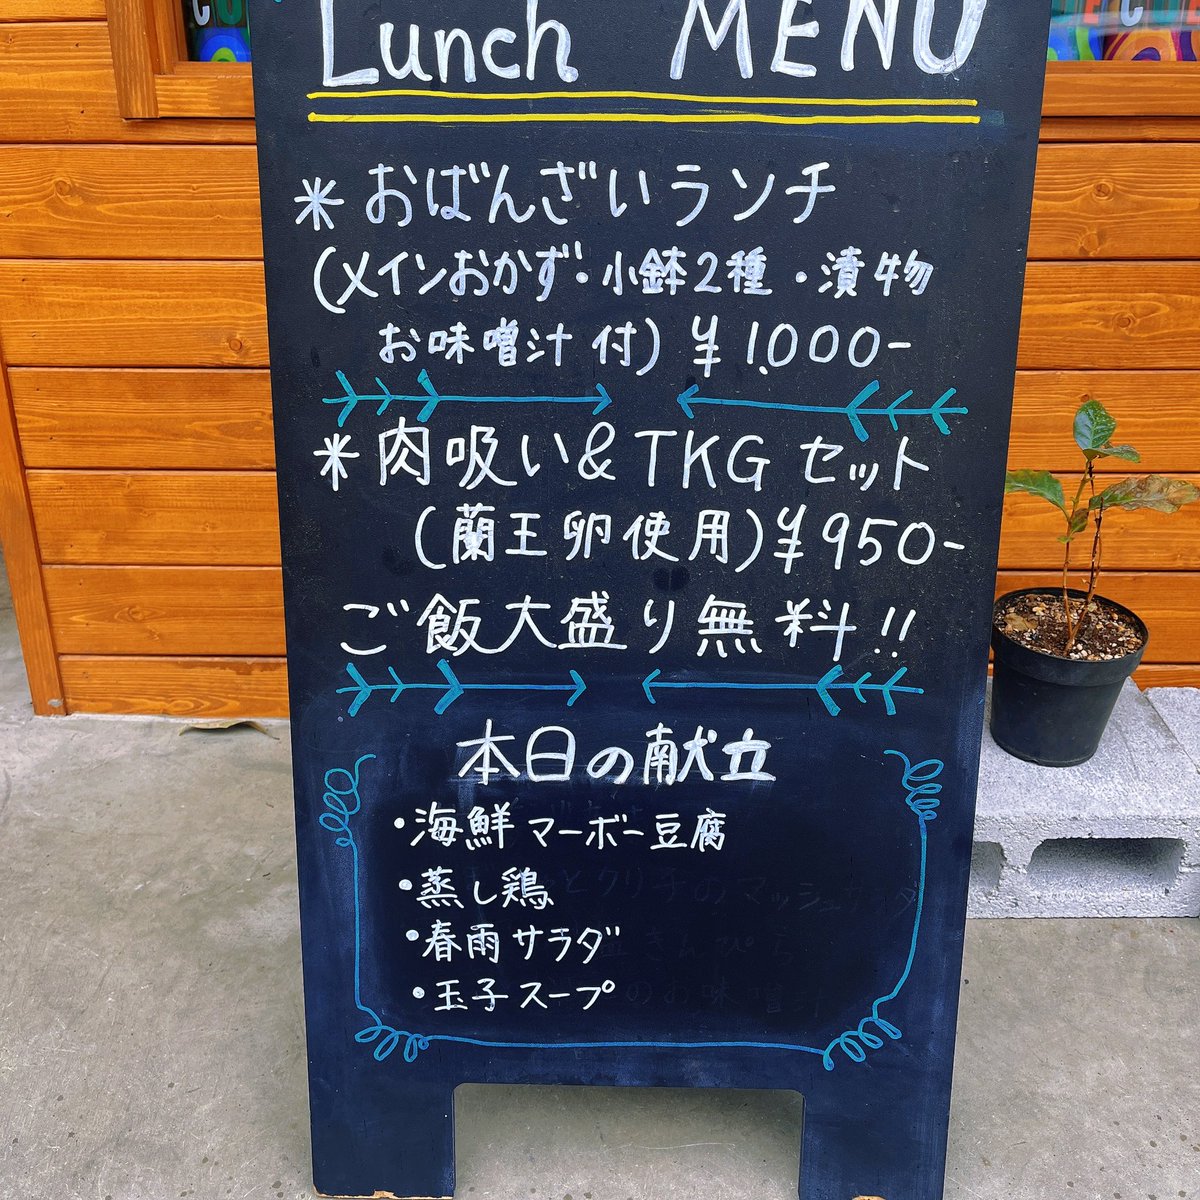 Lunch MENU
＊おばんざいランチ
(メインおかず・小鉢2種・漬物
お味噌汁付) ¥1.000-
＊肉吸い&TKGセット
(蘭王卵使用)¥950-
ご飯大盛り無料!!
本日の献立
・海鮮マーボー豆腐
・蒸し鶏
・春雨サラダ
・玉子スープ